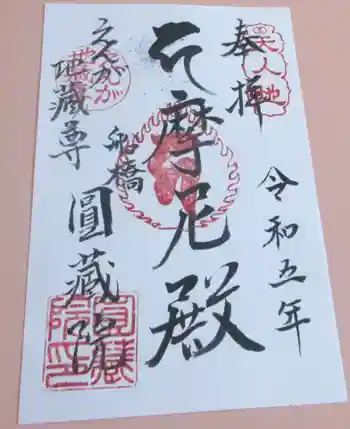 奉拝
令和五年
摩尼殿
船橋
圓蔵院
えんがが
地蔵尊